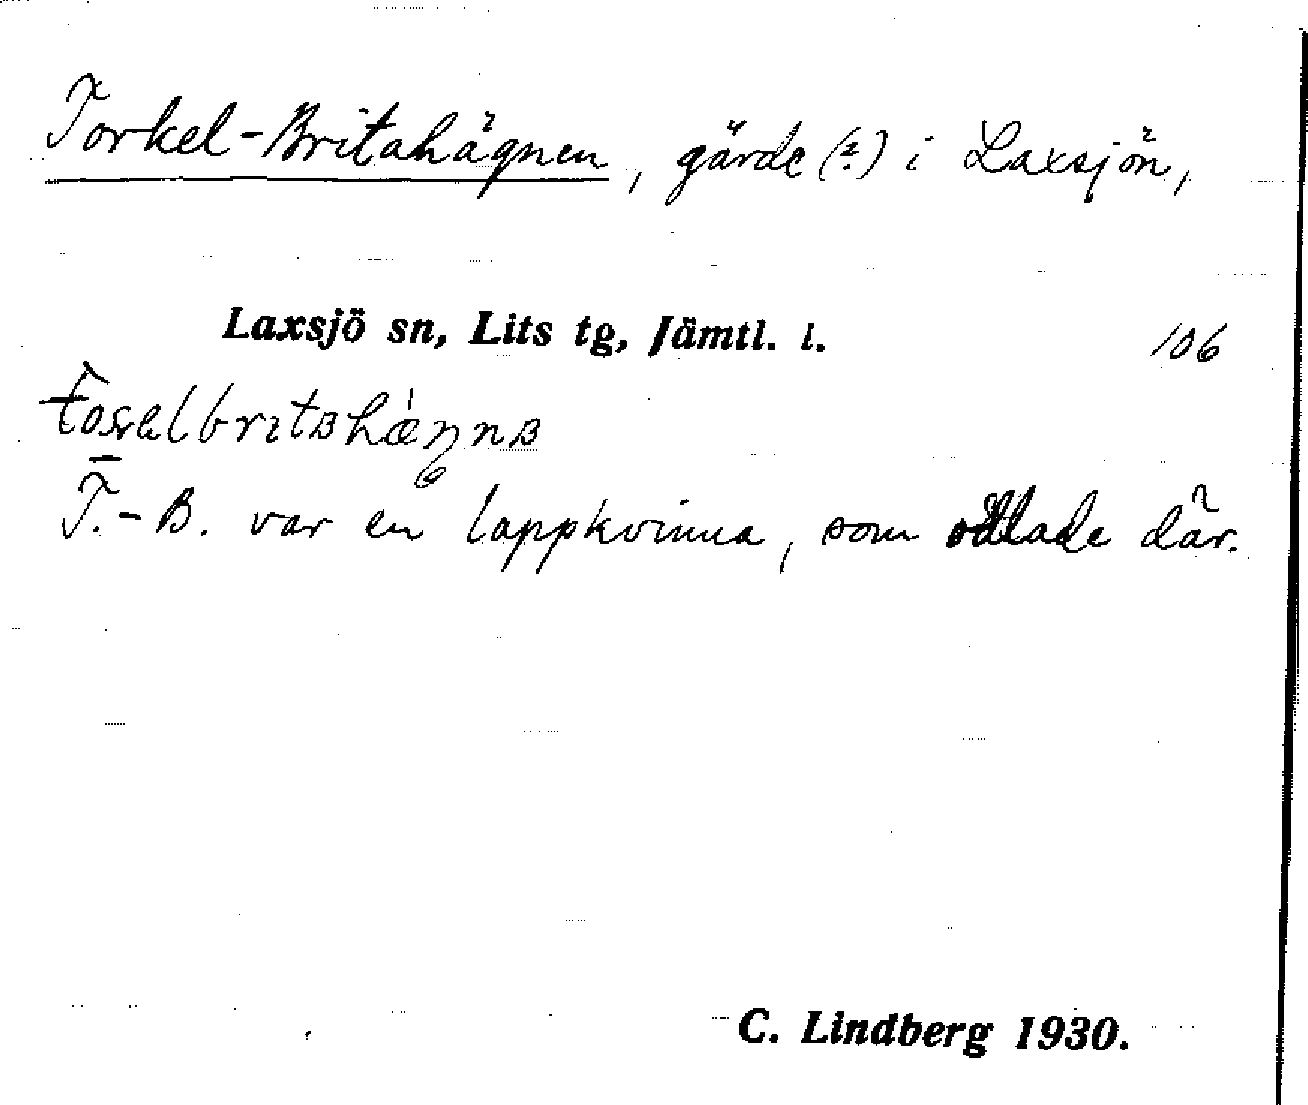 Torkel-Britahägnen, gärde (?) i Laxsjön,
Laxsjö sn, Lits tg, Jämtl. l. 106
T.-B. var en lappkvinna, som odlade där.
C. Lindberg 1930.